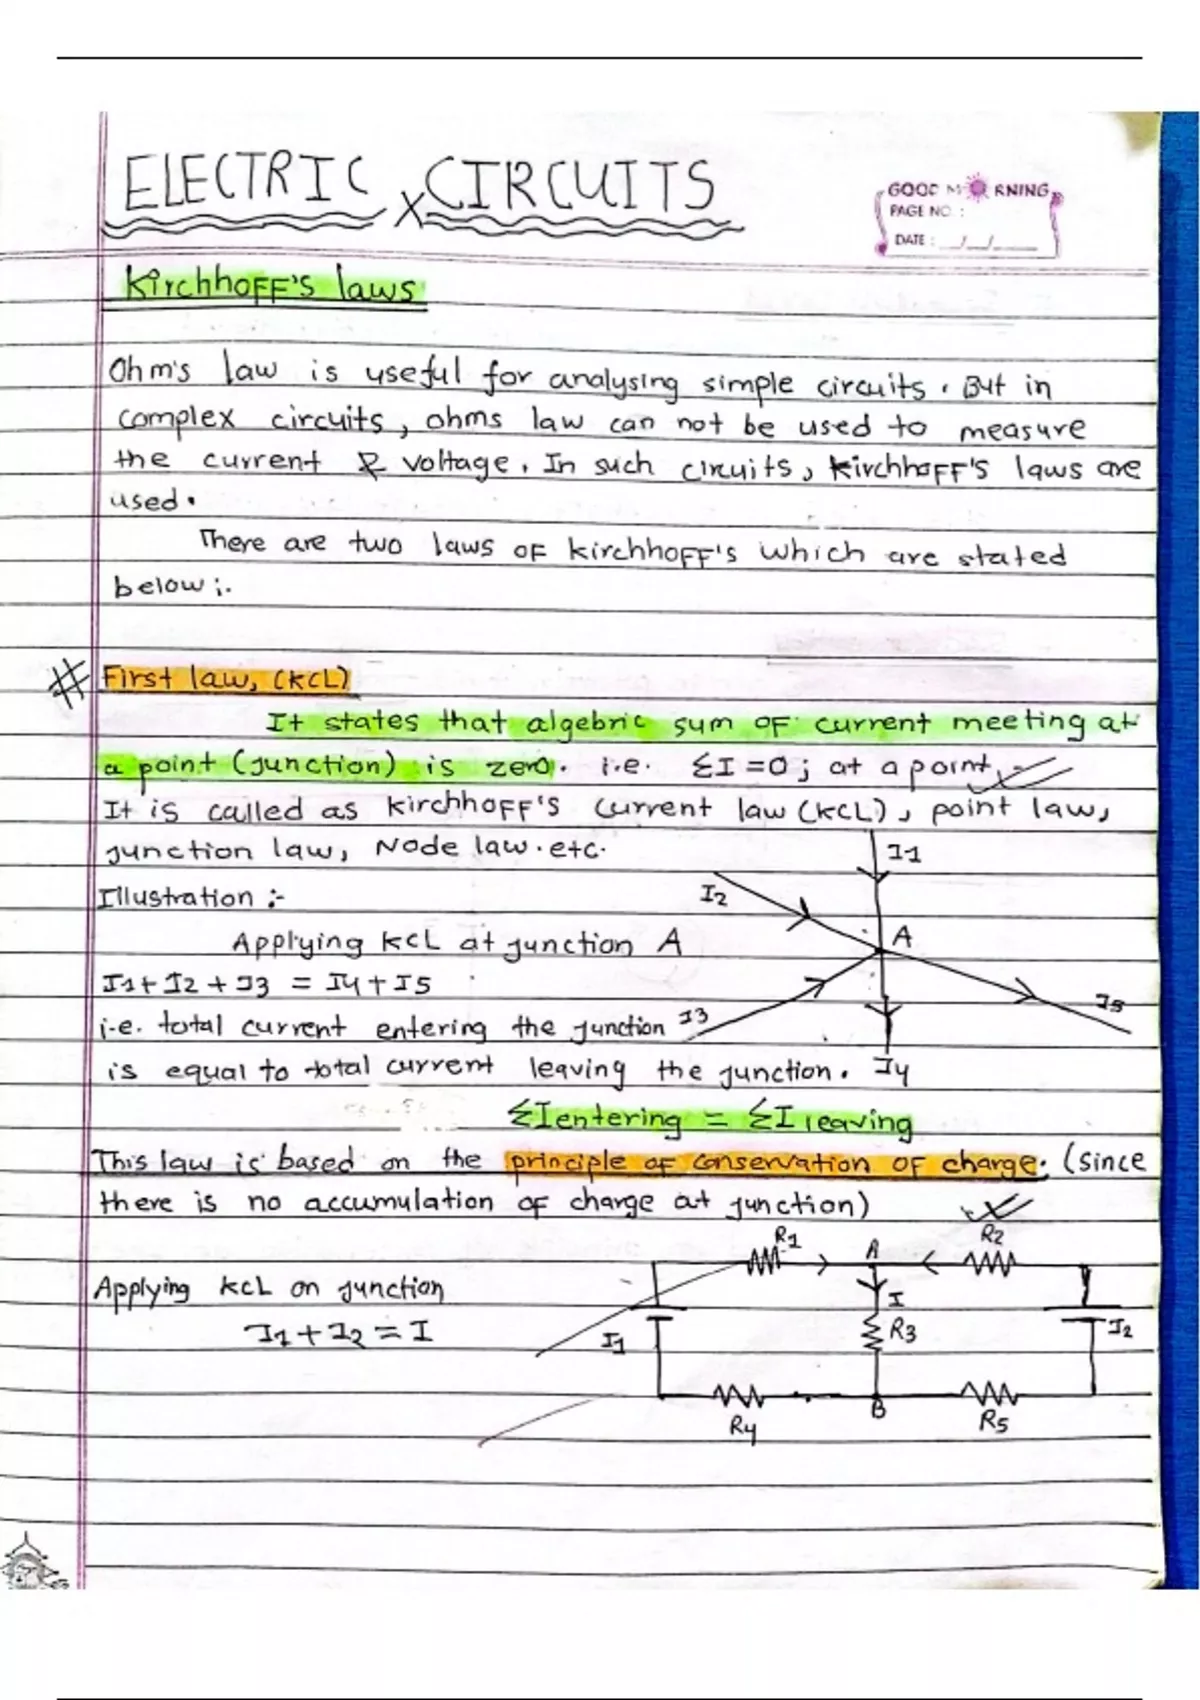 ELECTRIC CIRCUITS
GOOD MORNING
PAGE NO. :
DATE : __/__/____
Kirchhoff's laws
Ohm's law is useful for analysing simple circuits. But in
complex circuits, ohms law can not be used to measure
the current & voltage. In such circuits, Kirchhoff's laws are
used.
There are two laws of kirchhoff's which are stated
below :-
# First law, (KCL)
It states that algebric sum of current meeting at
a point (junction) is zero. i.e. ΣI=0; at a point,
It is called as Kirchhoff's current law (KCL), point law,
junction law, Node law.etc.
I1
I2
Illustration :-
A
Applying KCL at junction A
I1+I2+I3 = I4+I5
I5
I3
i.e. total current entering the junction
is equal to total current leaving the junction.
I4
ΣI entering = ΣI leaving
This law is based on the principle of conservation of charge. (since
there is no accumulation of charge at junction)
R1 A R2
Applying KCL on junction
I
I1+I2 = I
I1 R3 I2
B
R4 R5